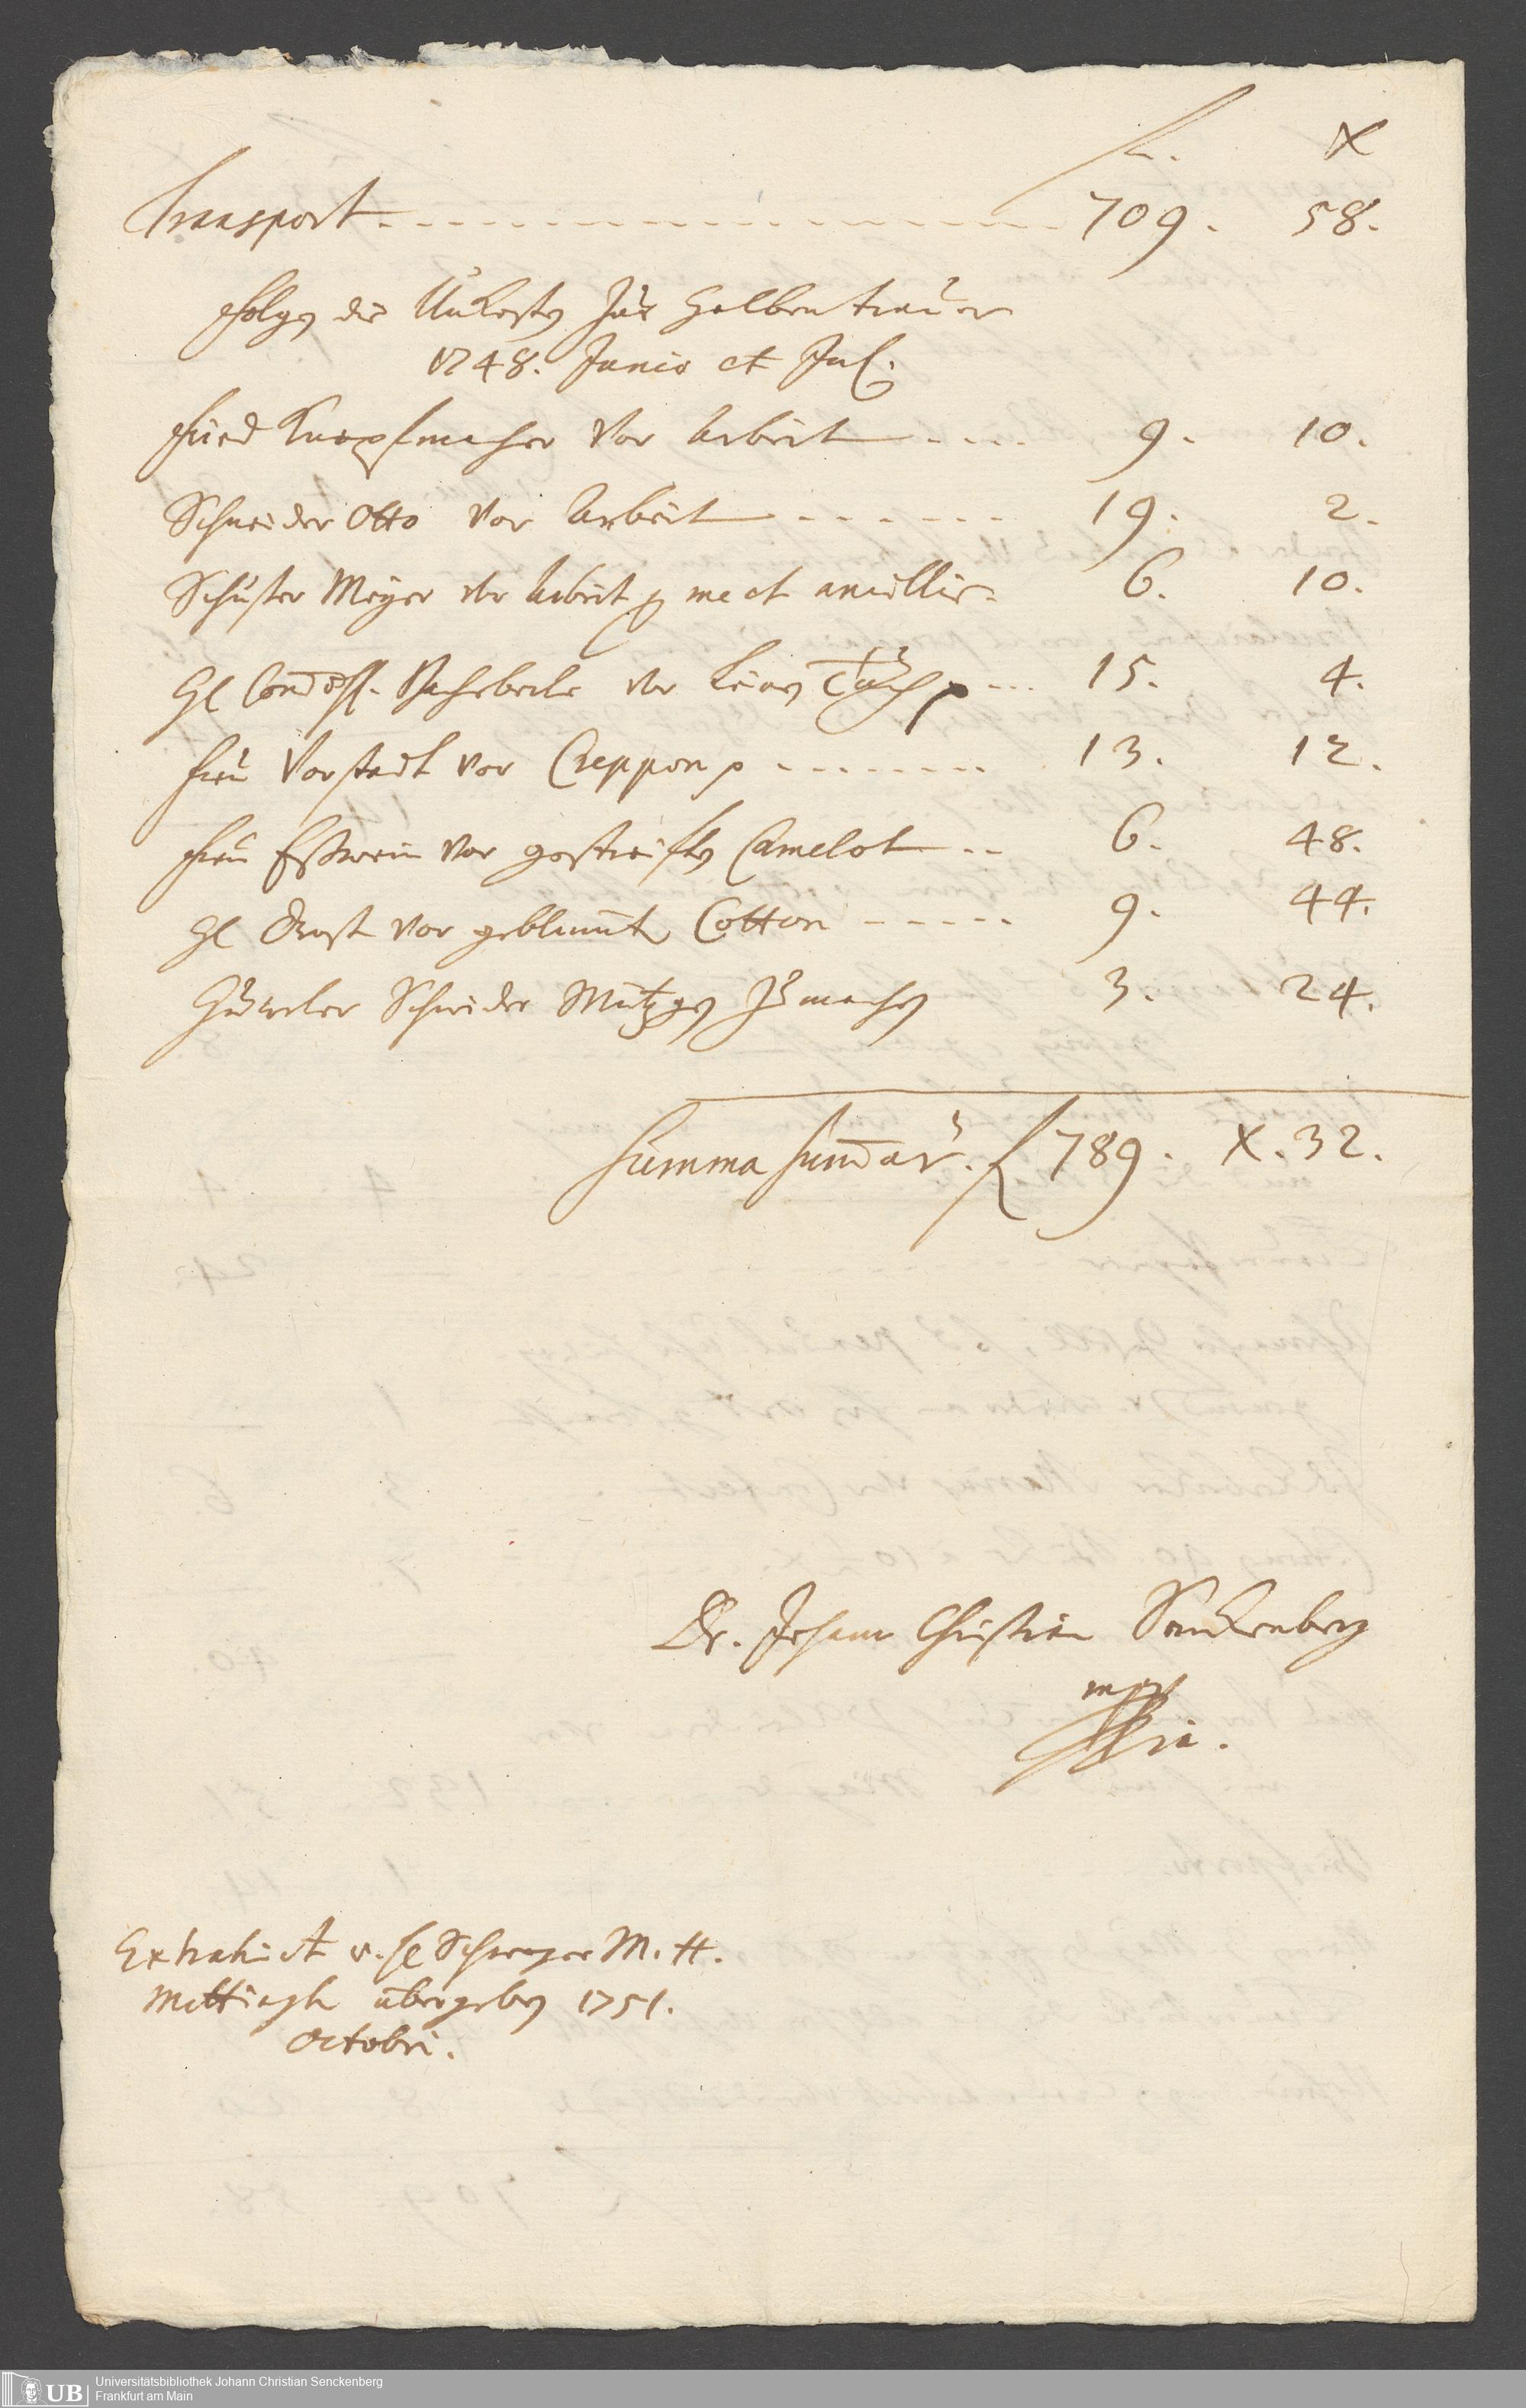 f. x
Transport 709. 58.
Folgen die Unkosten zur Halben trauer
1748. Junio et Jul.
Fried Knopfmacher vor Arbeit 9. 10.
Schneider Otto vor Arbeit 19. 2.
Schuster Meyer vor Arbeit p me et ancillis 6. 10.
vor 15. 4.
Frau vor Creppon p 13. 12.
Frau vor gestreiften Camelot 6. 48.
vor geblümt Cotton 9. 44.
Schneider Mützgen zu machen 3. 24.
Summa Sumar. f 789. X. 32.
Dr. Johann Christian Senckenberg
mp
pria.
Extrahirt u. H Schwager M. H.
Mettingh übergeben 1751.
Octobri.
UB
Universitätsbibliothek Johann Christian Senckenberg
Frankfurt am Main